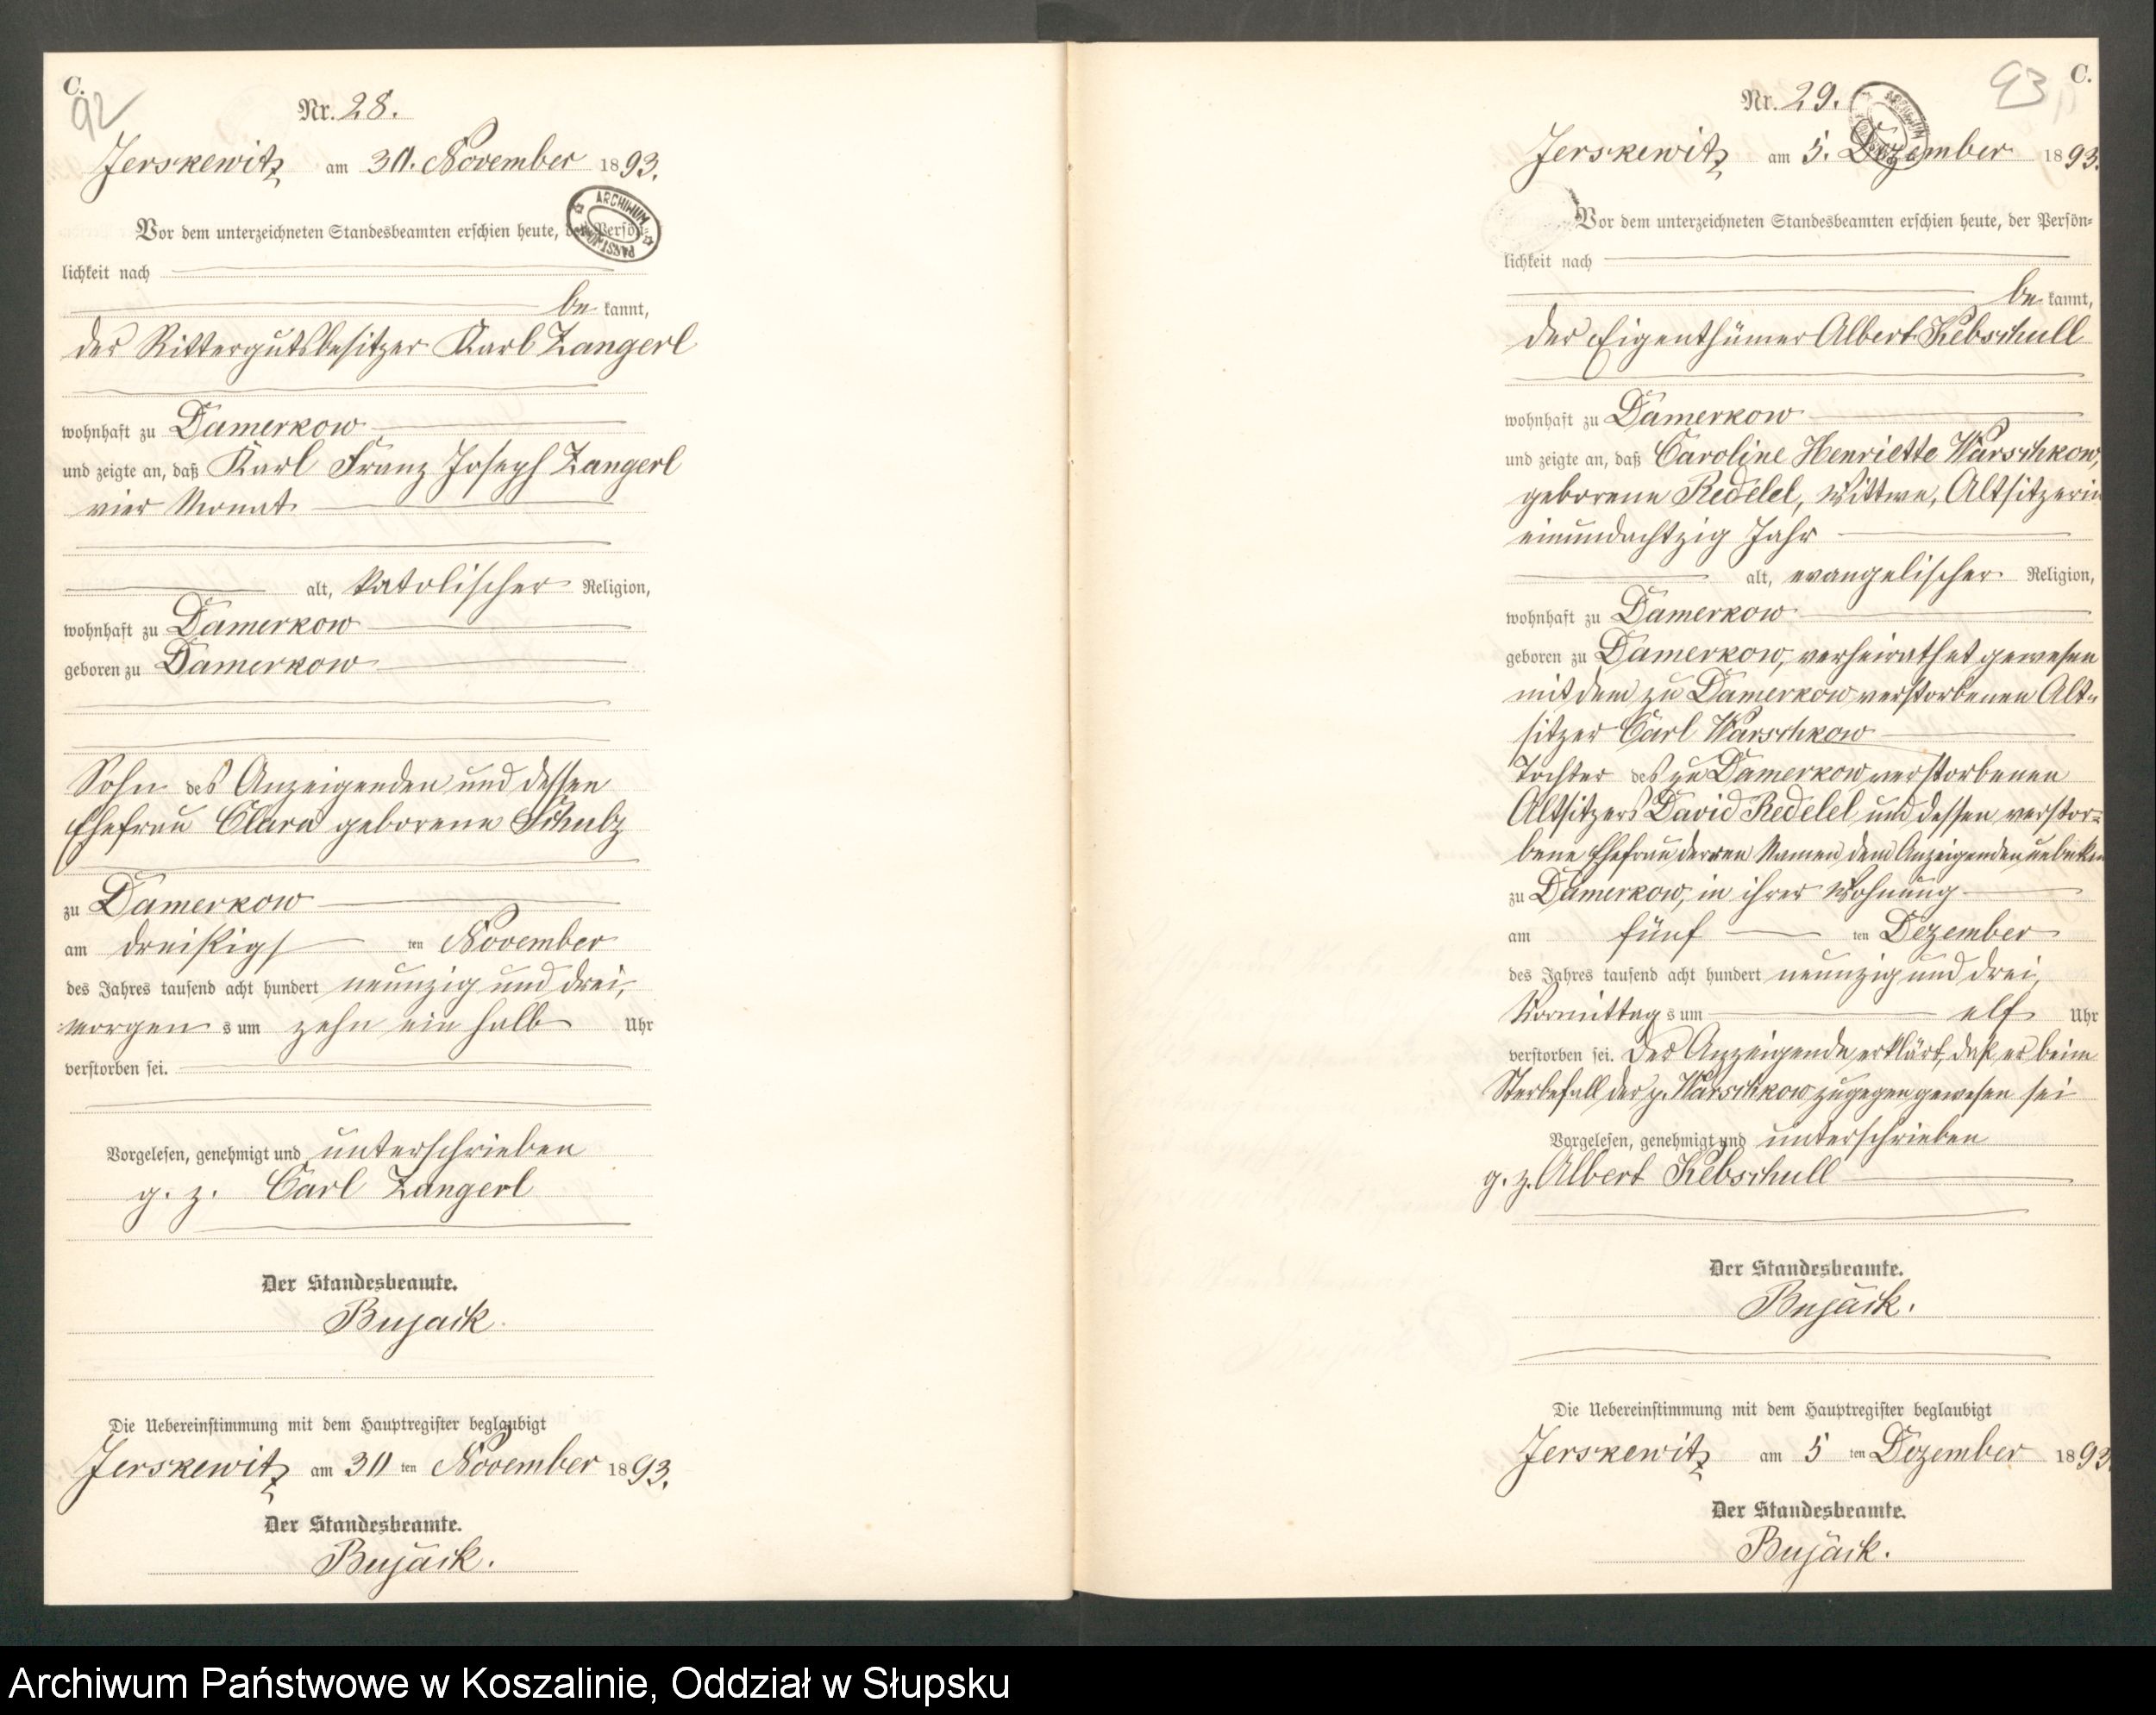 C.
92
Nr. 28.
Jerskewitz am 30. November 1893.
ARCHIWUM PAŃSTWOWE
Vor dem unterzeichneten Standesbeamten erschien heute, der Persön-
lichkeit nach
be kannt,
der Rittergutsbesitzer Karl Zangerl
wohnhaft zu Damerkow
und zeigte an, daß Karl Franz Joseph Zangerl
vier Monat
alt, katolischer Religion,
wohnhaft zu Damerkow
geboren zu Damerkow
Sohn des Anzeigenden und dessen
Ehefrau Clara geborene Schulz
zu Damerkow
am dreißigs ten November
des Jahres tausend acht hundert neunzig und drei,
morgen s um zehn ein halb Uhr
verstorben sei.
Vorgelesen, genehmigt und unterschrieben
g. z. Carl Zangerl
Der Standesbeamte.
Bujack.
Die Uebereinstimmung mit dem Hauptregister beglaubigt
Jerskewitz am 30 ten November 1893.
Der Standesbeamte.
Bujack.
C.
93
Nr. 29.
Jerskewitz am 5. Dezember 1893.
Vor dem unterzeichneten Standesbeamten erschien heute, der Persön-
lichkeit nach
be kannt,
der Eigenthümer Albert Kebschull
wohnhaft zu Damerkow
und zeigte an, daß Caroline Henriette Warschkow,
geborene Redelel, Wittwe, Altsitzerin
einundachtzig Jahr
alt, evangelischer Religion,
wohnhaft zu Damerkow
geboren zu Damerkow, verheirathet gewesen
mit dem zu Damerkow verstorbenen Alt-
sitzer Carl Warschkow
Tochter des zu Damerkow verstorbenen
Altsitzers David Redelel und dessen verstor-
bene Ehefrau derren Namen dem Anzeigenden
zu Damerkow, in ihrer Wohnung
am fünf ten Dezember
des Jahres tausend acht hundert neunzig und drei,
Vormittag s um elf Uhr
verstorben sei. Der Anzeigende erklärt, daß er beim
Sterbefall der p. Warschkow zugegen gewesen sei
Vorgelesen, genehmigt und unterschrieben
g. z. Albert Kebschull
Der Standesbeamte.
Bujack.
Die Uebereinstimmung mit dem Hauptregister beglaubigt
Jerskewitz am 5 ten Dezember 1893.
Der Standesbeamte.
Bujack.
Archiwum Państwowe w Koszalinie, Oddział w Słupsku